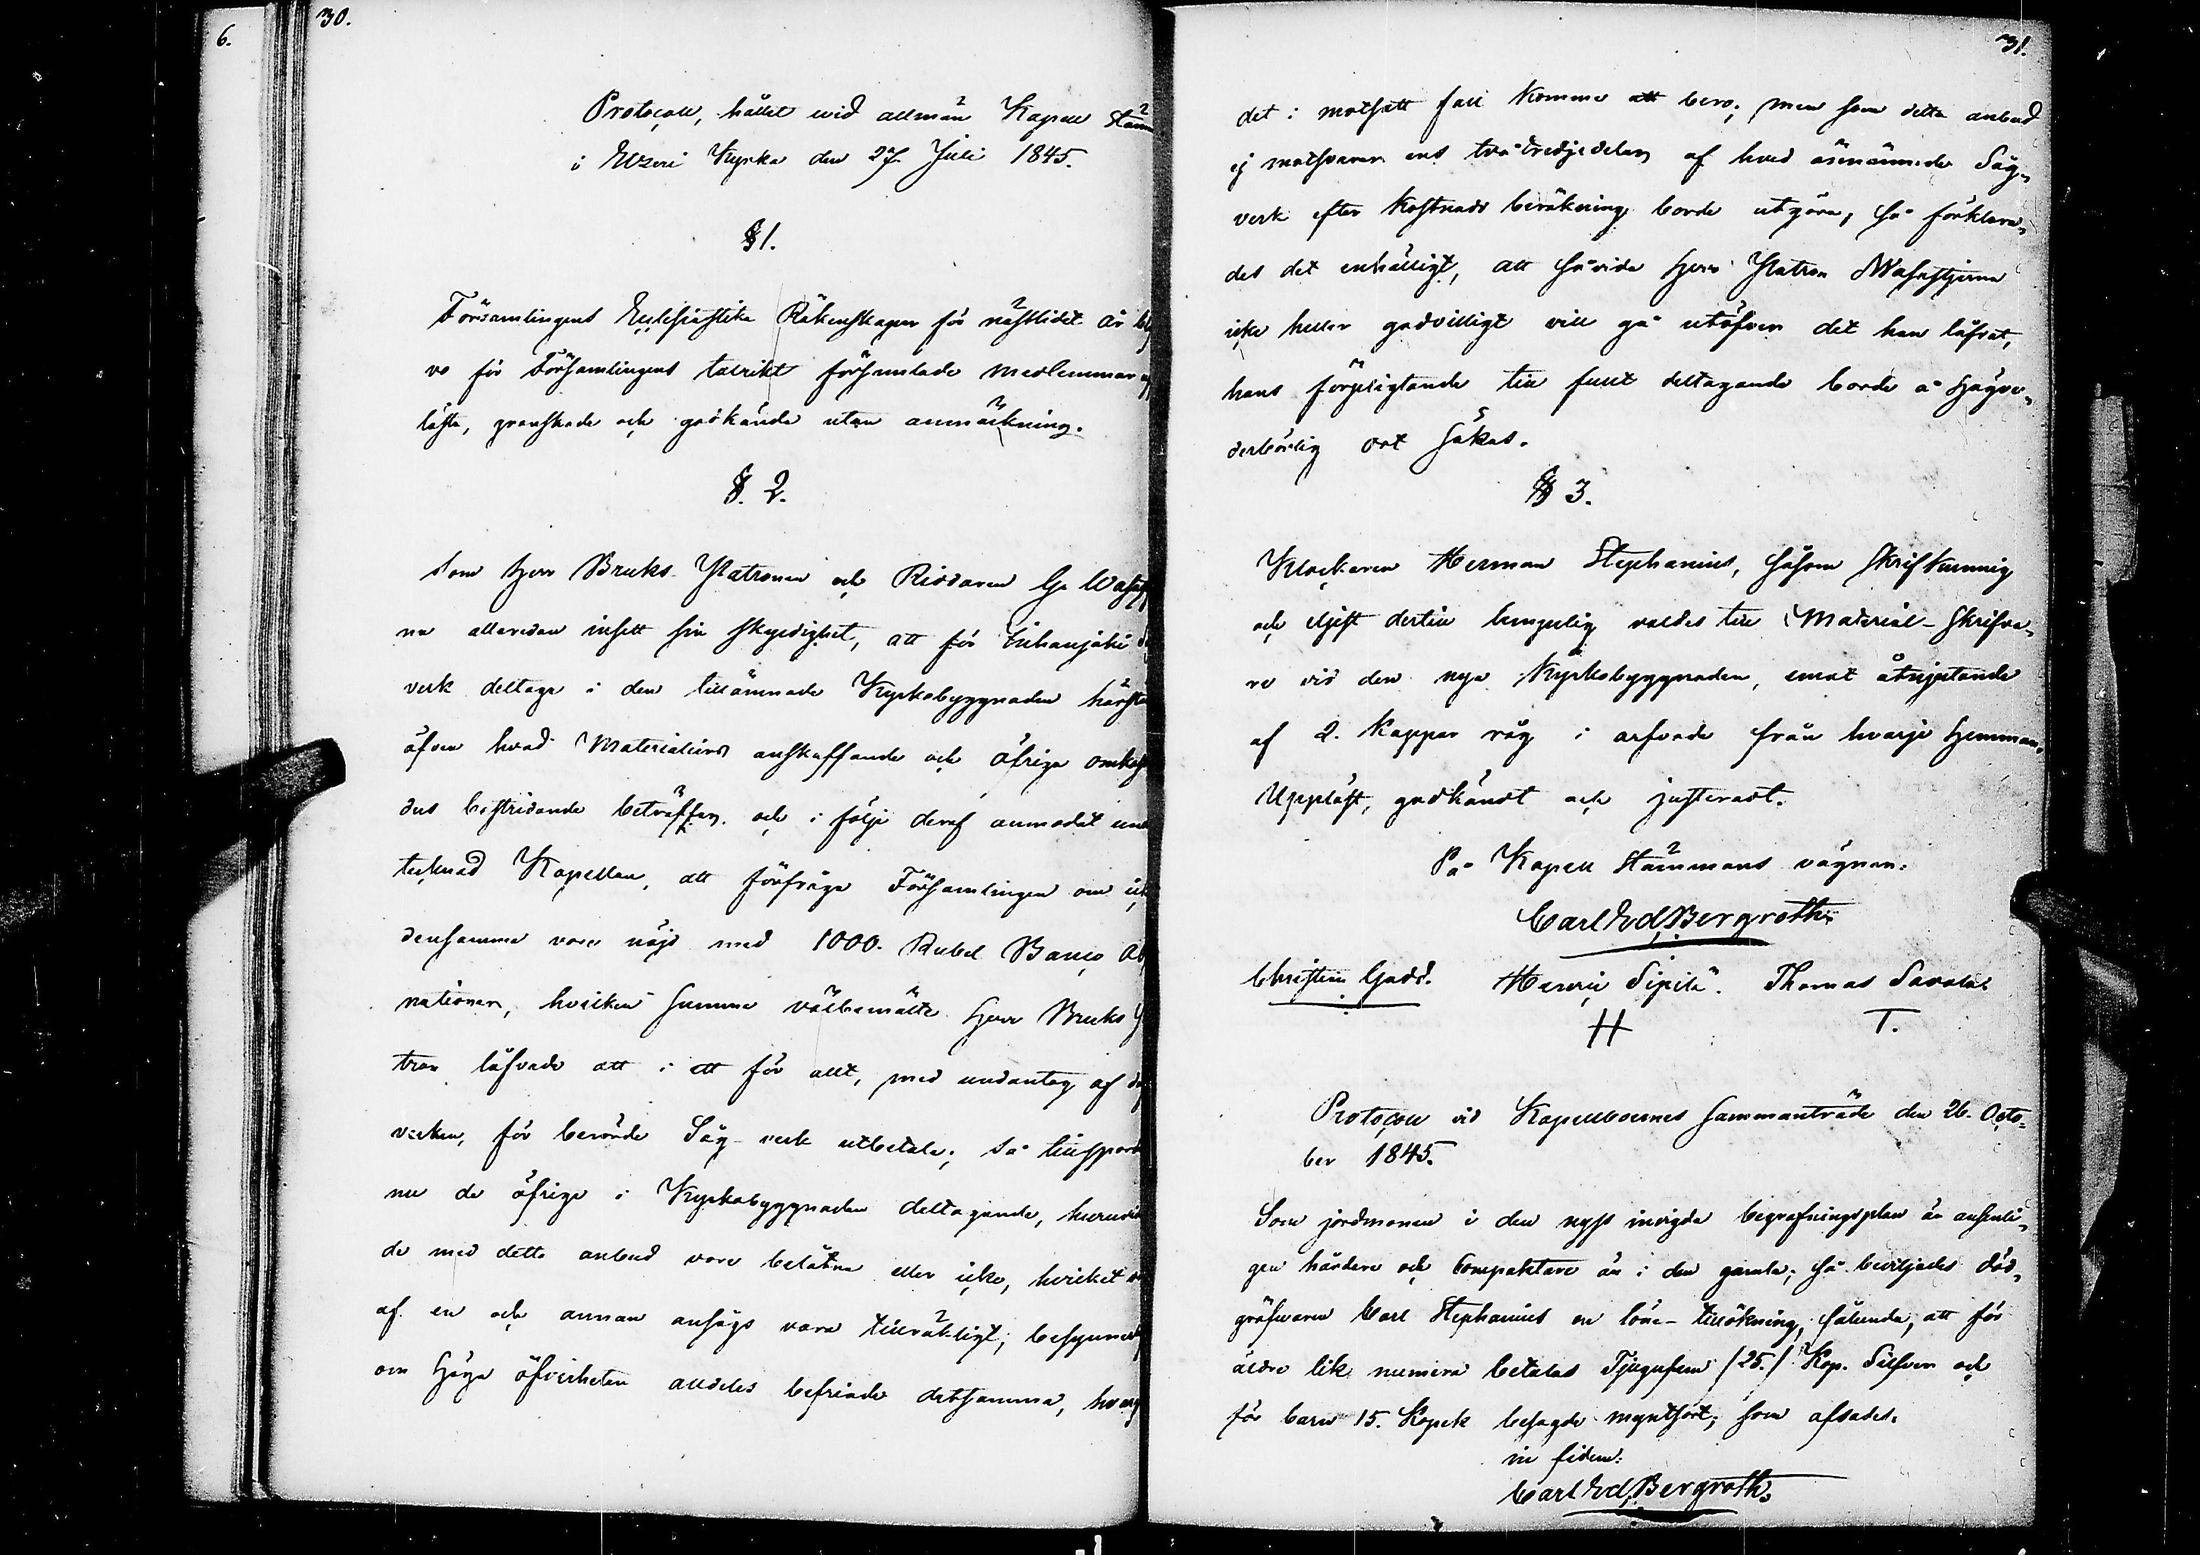 6.
30.
Protocoll, hållet wid allmän Kapell Stäm
i Etseri Kyrka den 27 Juli 1845.
§ 1.
Församlingens Ecclesiastika Räkenskaper för nästlidet år ble
vo för Församlingens talrikt församlade medlemmar
läste, granskade och godkände utan anmärkning.
§. 2.
Som Herr Bruks Patronen och Riddaren G Wasastj
na allaredan insett sin skyldighet, att för Inhanjoki
verk deltaga i den tillämnade Kyrkobyggnaden
äfven hvad Materialiers anskaffande och öfriga omkost
ders bestridande beträffar, och i följe deraf anmodat und
tecknad Kapellan, att förfråga Församlingen om ick
densamma vore nöjd med 1000. Rubel Banco As
nationer, hvilken summa välbemälte Herr Bruks P
tron låfvade att i ett för allt, med undantag af
verken, för berörde Såg-verk utbetala; Så tillspord
nu de öfrige i Kyrkobyggnaden deltagande, huruvid
de med detta anbud vore belåtne eller icke, hvilket
af en och annan ansågs vara tillräkligt;
om Höga öfverheten alldeles befriade detsamma,
31.
det i motsatt fall komme att bero; men som detta anbud
ej motsvarar ens två tredjedelar af hvad ofvannämnde Såg-
verk efter Kostnads beräkning borde utgöra, så förklara-
des det enhälligt, att såvida Herr Patron Wasastjerna
icke heller godvilligt vill gå utöfver det han låfvat,
hans förpligtande till fullt deltagande borde å Högve-
derbörlig ort sökas.
§ 3.
Klockaren Herman Stephanius, såsom Skrifkunnig
och eljest dertill lämpelig valdes till Material-Skrifva-
re vid den nya Kyrkobyggnaden, emot åtnjutande
af 2. Kappar råg i arfvode från hvarje Hemman.
Uppläst, godkändt och justeradt.
På Kapell Stämmans vägnar:
Carl Ed. Bergroth.
Christian Gadd. Henric Sipilä. Thomas Savola.
H T.
Protocoll vid Kapellboernes Sammanträde den 26. Octo-
ber 1845.
Som jordmonen i den nyss invigda begrafningsplan är ansenli-
gen hårdare och compaktare än i den gamla; så beviljades död-
gräfvaren Carl Stephanius en löne-tillökning, sålunda, att för
äldre lik numera betalas Tjugufem /25./ Kop. Silfver och
för barn 15. Kopek besagde myntsort; som afsades.
in fidem:
Carl Ed. Bergroth.